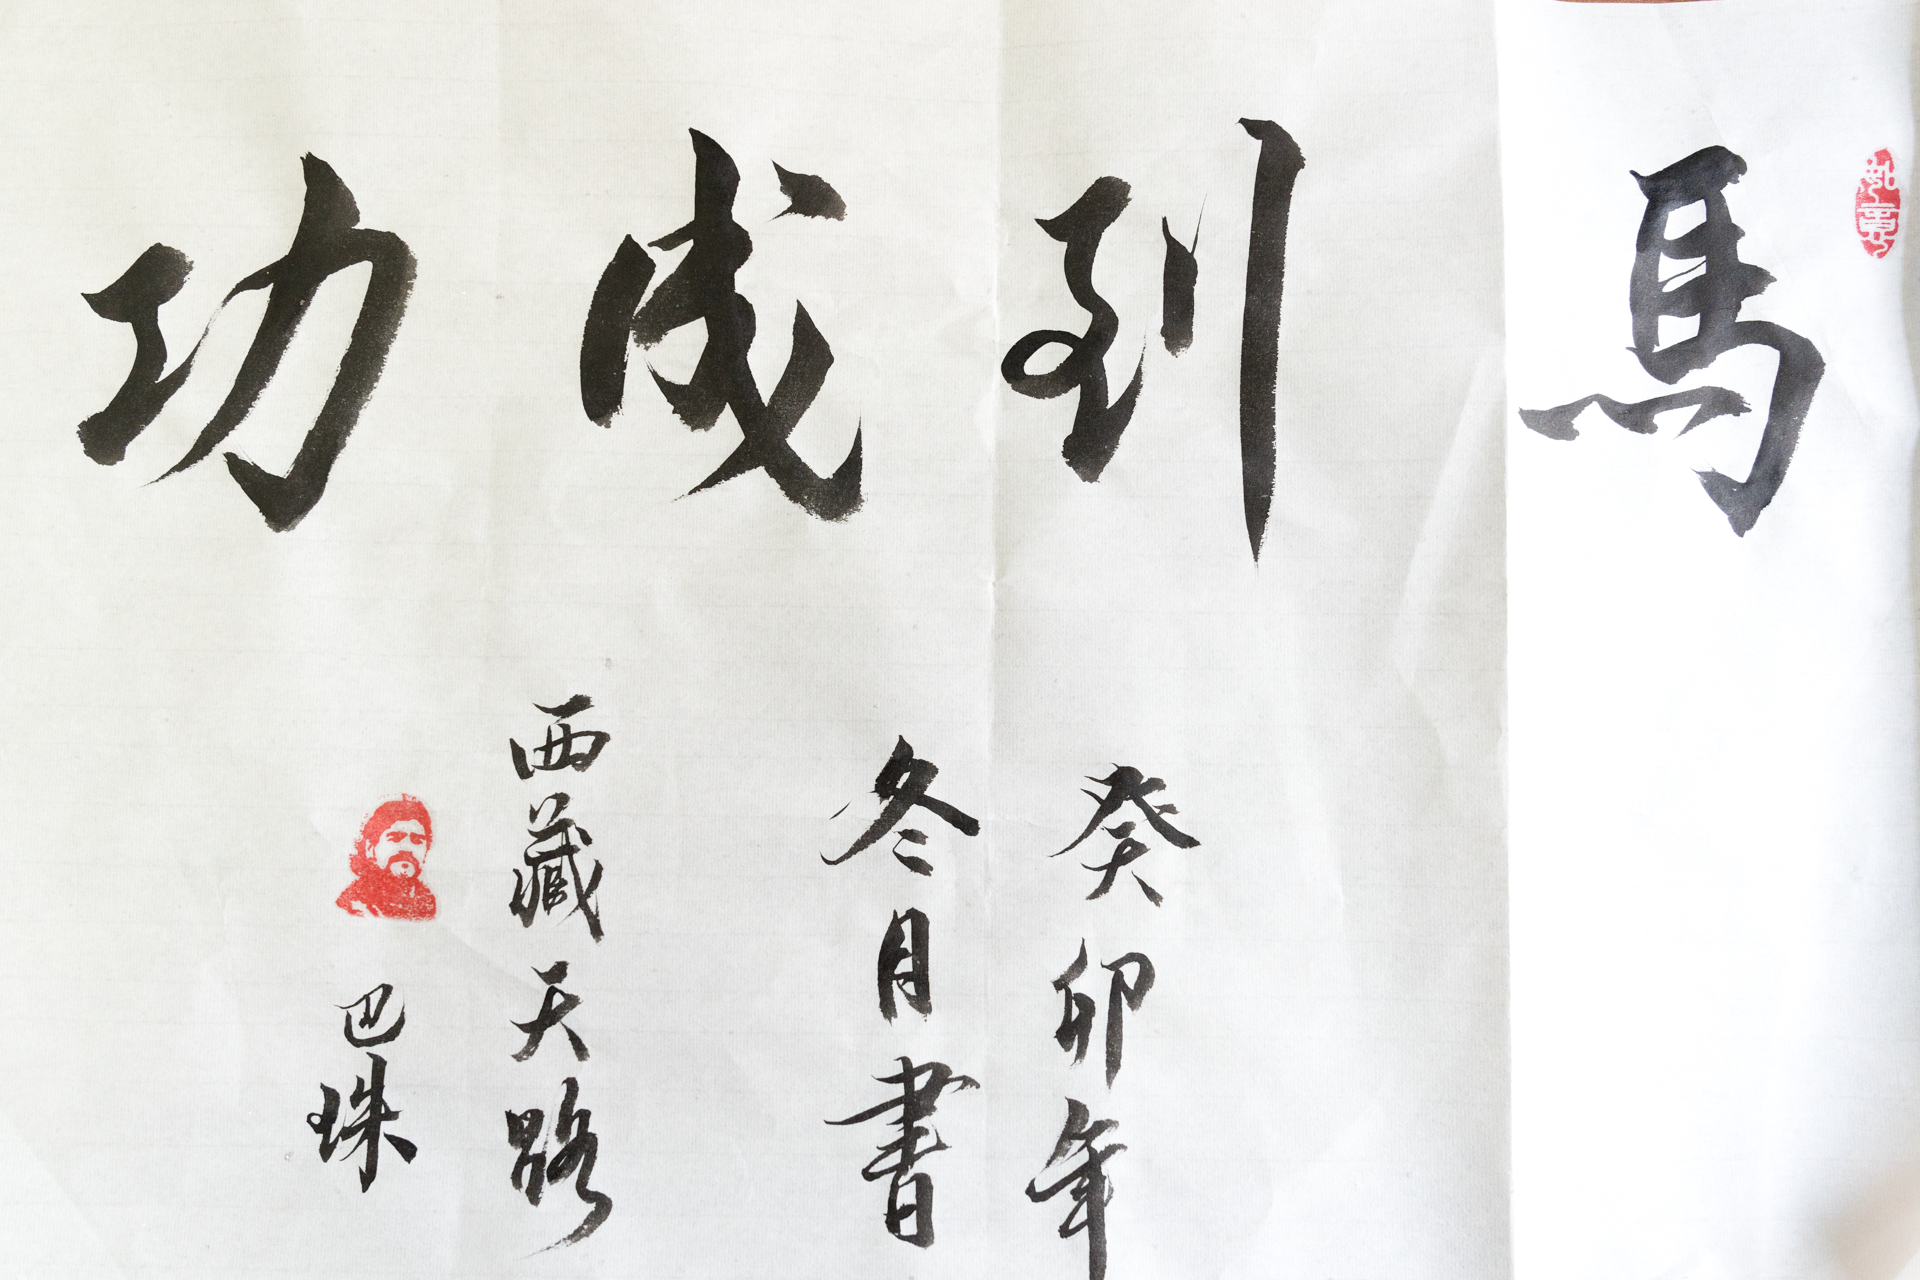 馬到成功
癸卯年
冬月書
西藏天路
巴珠